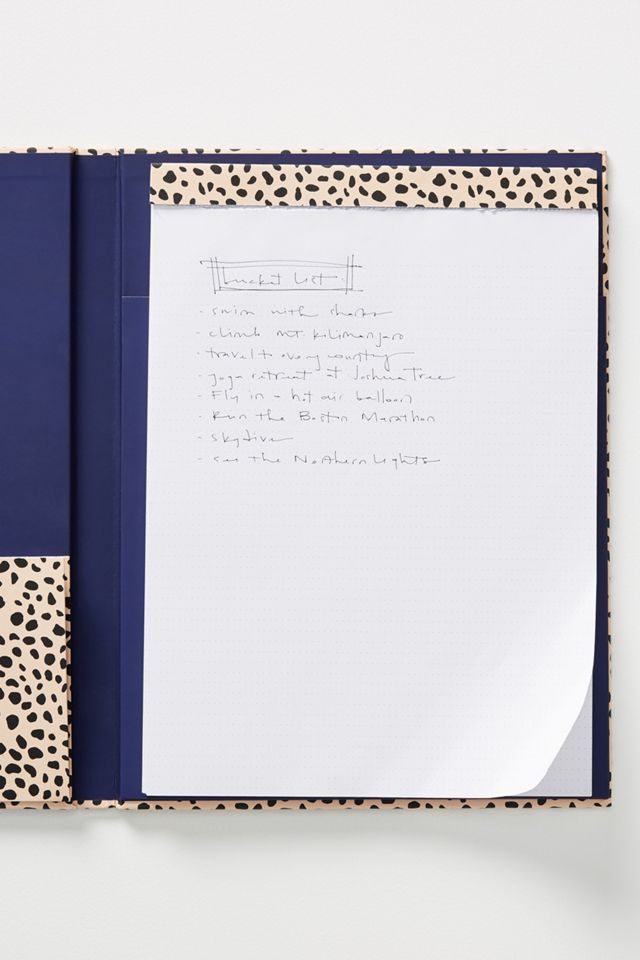 bucket list
- swim with sharks
- climb mt. kilimanjaro
- travel to every country
- yoga retreat at Joshua Tree
- Fly in a hot air balloon
- Run the Boston Marathon
- skydive
- see the Northern Lights